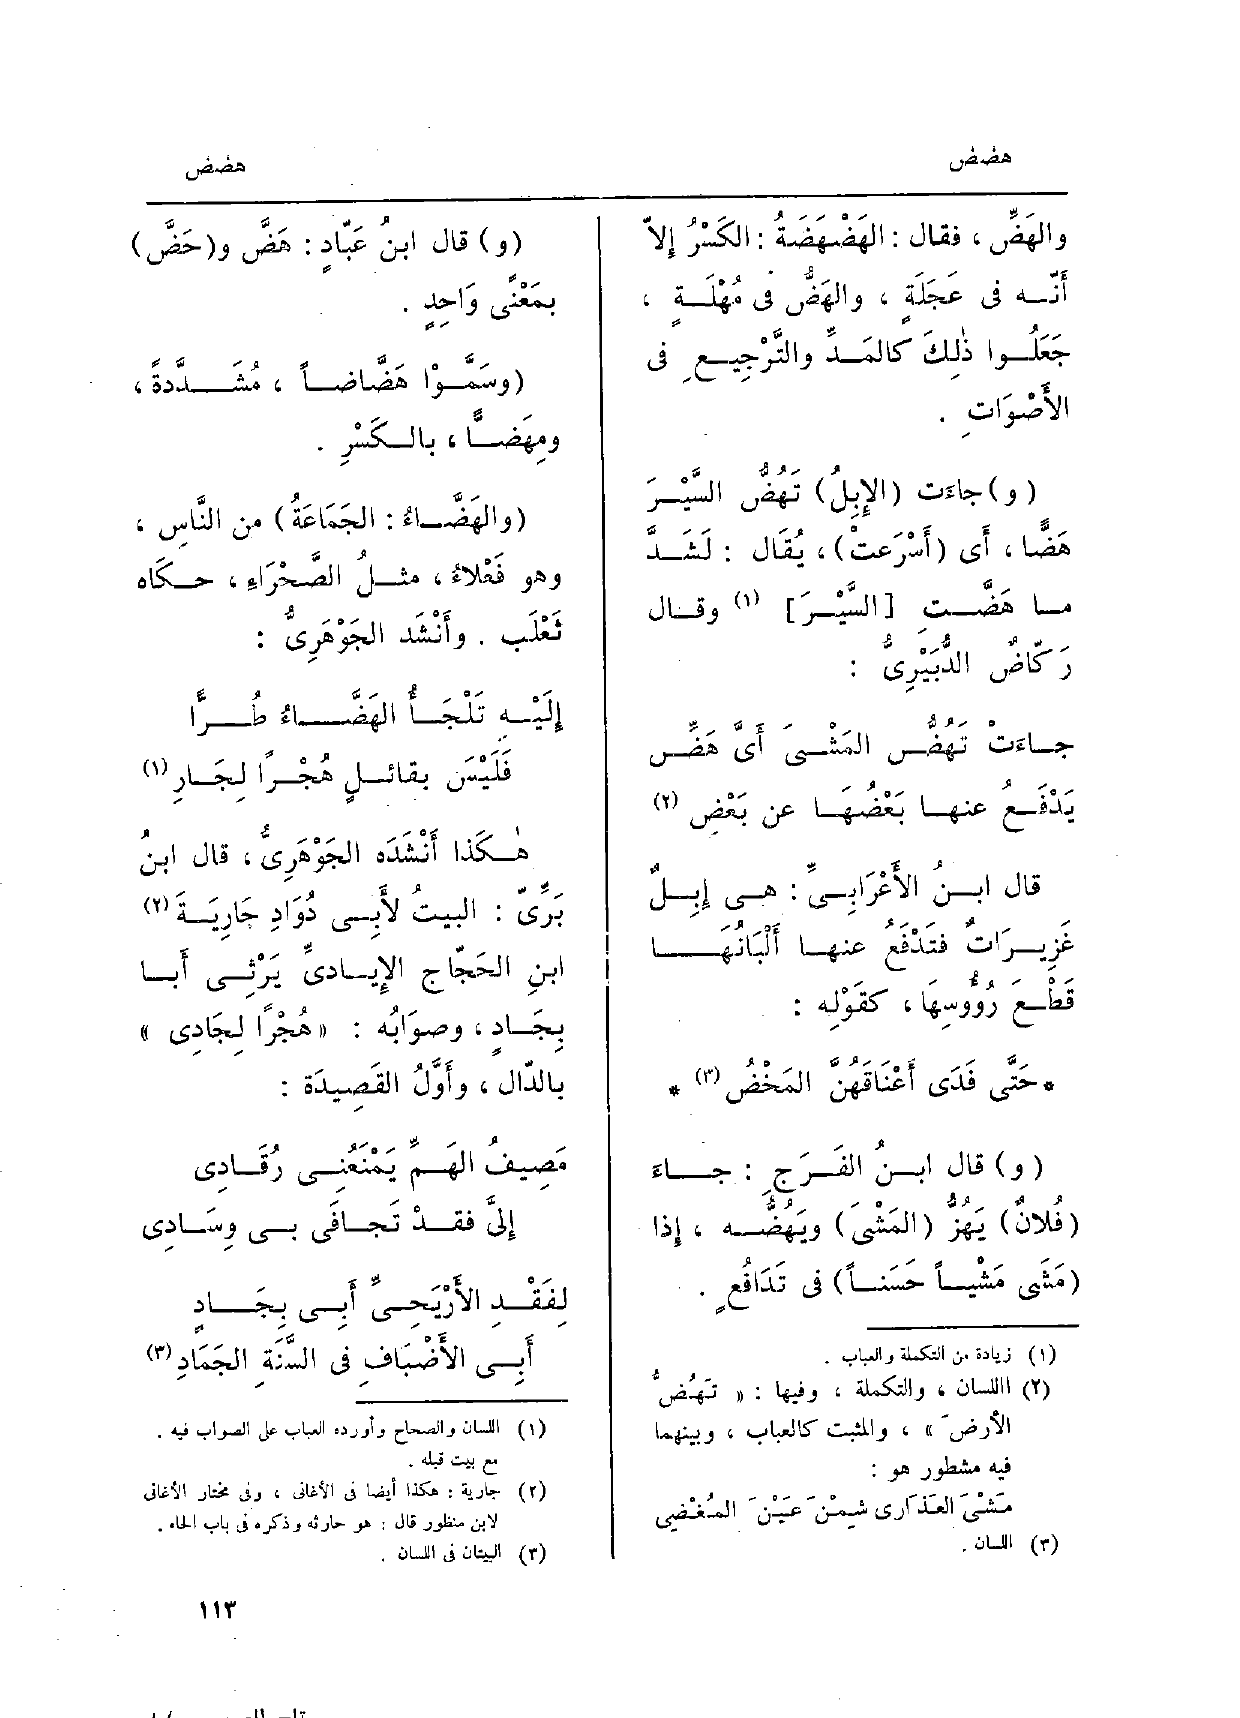 هضض
والهَضِّ، فقال: الهَضْهَضَةُ: الكَسْرُ إِلاّ
أَنّه فى عَجَلَةٍ، والهَضُّ فى مُهْلَةٍ،
جَعَلُوا ذٰلِكَ كالمَدِّ والتَّرْجِيعِ فى
الأَصْوَاتِ.
(و) جاءَت (الإِبِلُ) تَهُضُّ السَّيْرَ
هَضًّا، أَى (أَسْرَعتْ)، يُقَال: لَشَدَّ
ما هَضَّتِ [السَّيْرَ] (١) وقال
رَكّاضٌ الدُّبَيْرِىُّ:
جاءَتْ تهُضُّ المَشْىَ أَىَّ هَضِّ
يَدْفَعُ عنها بَعْضُهَا عن بَعْضِ (٢)
قال ابنُ الأَعْرَابِىِّ: هى إِبِلٌ
غَزِيرَاتٌ فتَدْفَعُ عنها أَلْبَانُهَا
قَطْعَ رُؤُوسِهَا، كقَوْلِه:
* حَتَّى فَدَى أَعْنَاقَهُنَّ المَخْضُ (٣) *
(و) قال ابنُ الفَرَجِ: جاءَ
(فُلانٌ) يَهُزُّ (المَشْىَ) ويَهُضُّه، إِذا
(مَشَى مَشْياً حَسَناً) فى تَدَافُعٍ.
(١) زيادة من التكملة والعباب.
(٢) االلسان، والتكملة، وفيها: « تَهُضُّ
الأرضَ »، والمثبت كالعباب، وبينهما
فيه مشطور هو:
مَشْىَ العَذَارى شِمْنَ عَيْنَ المُغْضِى
(٣) اللسان.
هضض
(و) قال ابنُ عَبّادٍ: هَضَّ و(حَضَّ)
بمَعْنًى وَاحِدٍ.
(وسَمَّوْا هَضَّاضاً، مُشَدَّدَةً،
ومِهَضًّا، بالكَسْرِ.
(والهَضَّاءُ: الجَمَاعَةُ) من النَّاسِ،
وهو فَعْلاءُ، مثلُ الصَّحْرَاءِ، حكاه
ثَعْلَب. وأَنْشَد الجَوْهَرِىُّ:
إِلَيْه تَلْجَأُ الهَضَّاءُ طُرًّا
فَلَيْسَ بقائلٍ هُجْرًا لِجَارِ (١)
هٰكذا أَنْشَدَه الجَوْهَرِىُّ، قال ابنُ
بَرِّىّ: البيتُ لأَبى دُوَادٍ جَارِيَةَ (٢)
ابنِ الحَجّاج الإِيادىِّ يَرْثِى أَبا
بِجَادٍ، وصوَابُه: « هُجْرًا لِجَادِى »
بالدّال، وأَوَّلُ القَصِيدَة:
مَصِيفُ الهَمِّ يَمْنَعُنِى رُقَادِى
إِلىَّ فقدْ تَجافَى بى وِسَادِى
لِفَقْدِ الأَرْيَحِىِّ أَبِى بِجَادٍ
أَبِى الأَضْيَافِ فى السَّنَةِ الجَمَادِ (٣)
(١) اللسان والصحاح وأورده العباب على الصواب فيه.
مع بيت قبله.
(٢) جارية: هكذا أيضا فى الأغانى، وفى مختار الأغانى
لابن منظور قال: هو حارثه وذكره فى باب الحاء.
(٣) البيتان فى اللسان.
١١٣